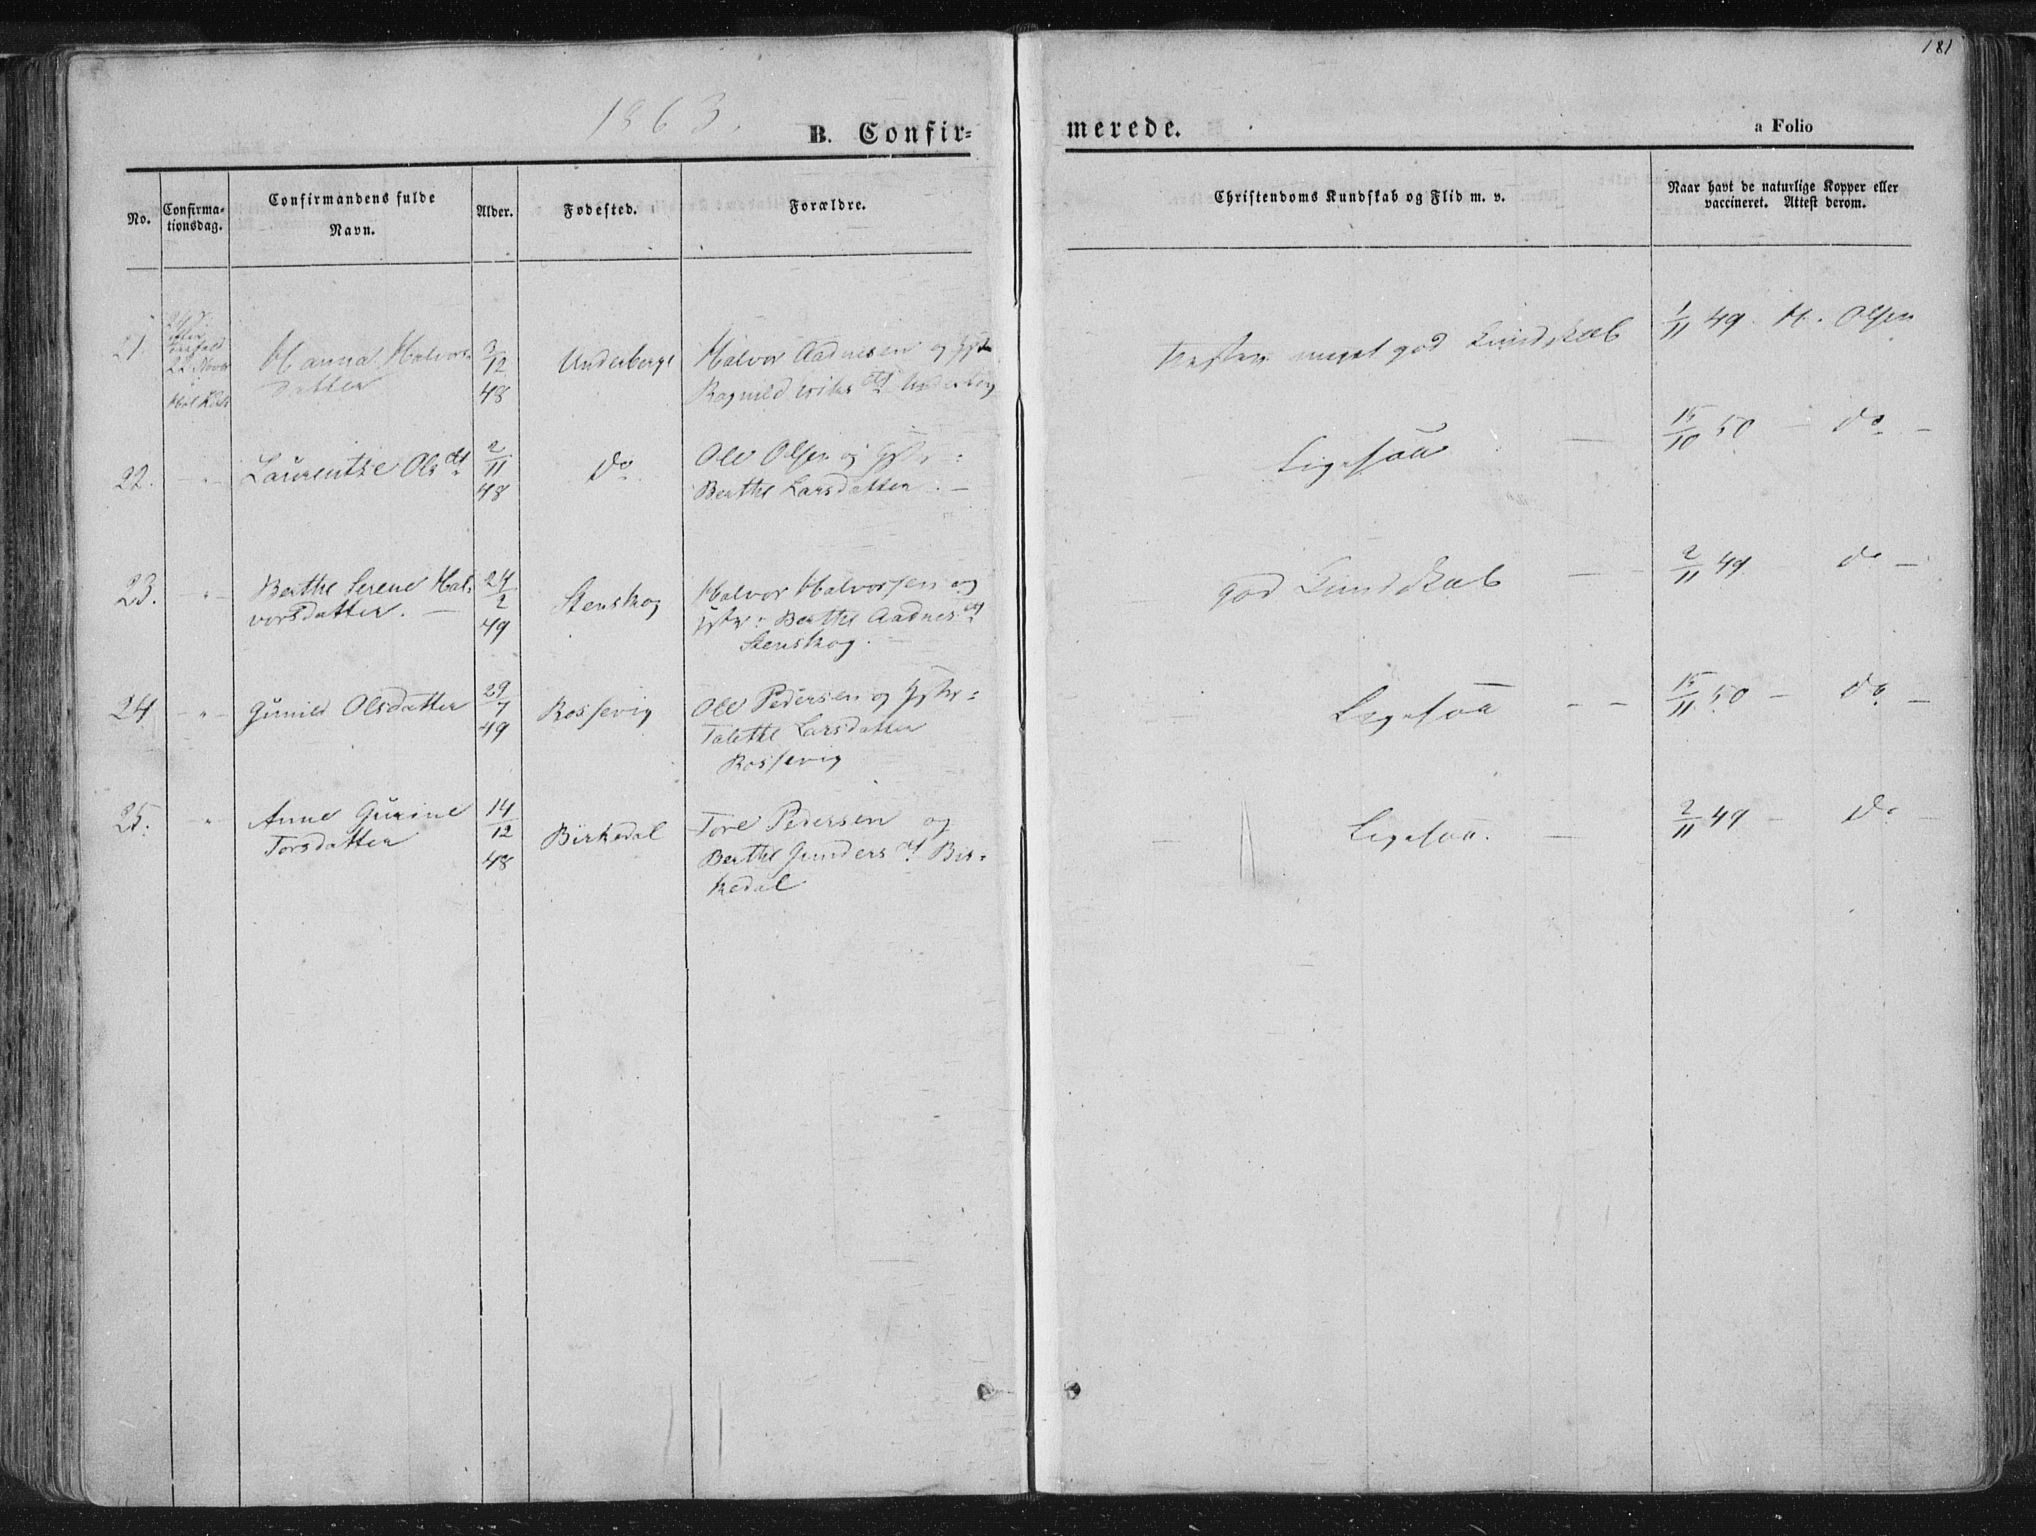 181
1863.
B. Confir=
merede.
a Folio
No.
Confirma-
tionsdag.
Confirmandens fulde
Navn.
Alder.
Fødested.
Forældre.
Christendoms Kundskab og Flid m. v.
Naar havt de naturlige Kopper eller
vaccineret. Attest derom.
21.
22 Novbr
Hanna Halvors-
datter
3/12
48
Underberge
Halvor Aadnesen og Hstr
Ragnild datt Underberg
meget god Kundskab
1/11 49. H. Olsen
22.
" Laurentze Olsdtt
2/11
48
Do
Ole Olsen og Hstr:
Berthe Larsdatter. —
Ligesaa —
15/10 50 — Do —
23.
" Berthe Serene Hal-
vorsdatter. —
24/2
49
Stenskog
Halvor Halvorsen og
Hstr: Berthe Aadnesdtt
Stenskog. —
god Kundskab — —
2/11 49. Do —
24
— " — Gunild Olsdatter
29/7
49
Rossevig
Ole Pedersen og Hstr:
Talethe Larsdatter
Rossevig
Ligesaa — —
15/11 50 — Do —
25.
" Anne Gurine
Torsdatter
14/12
48
Birkedal
Tore Pedersen og
Berthe Gundersdtt Bir=
kedal
Ligesaa. —
2/11 49 — Do —